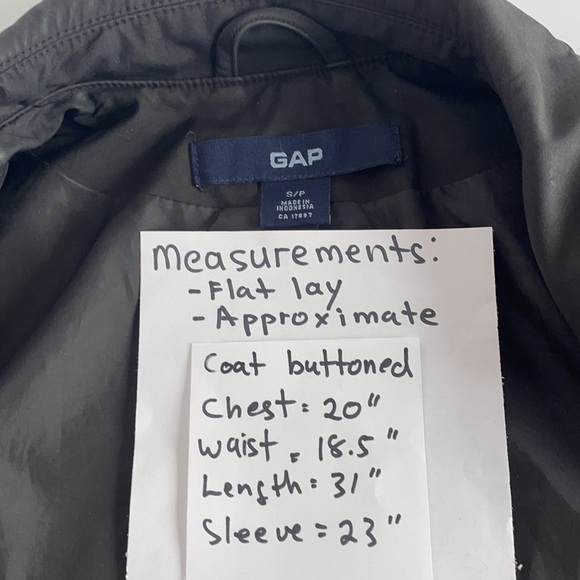 GAP
S/P
MADE IN
INDONESIA
CA 17897
Measurements:
- Flat lay
- Approximate
Coat buttoned
Chest = 20"
Waist = 18.5"
Length = 31"
Sleeve = 23"